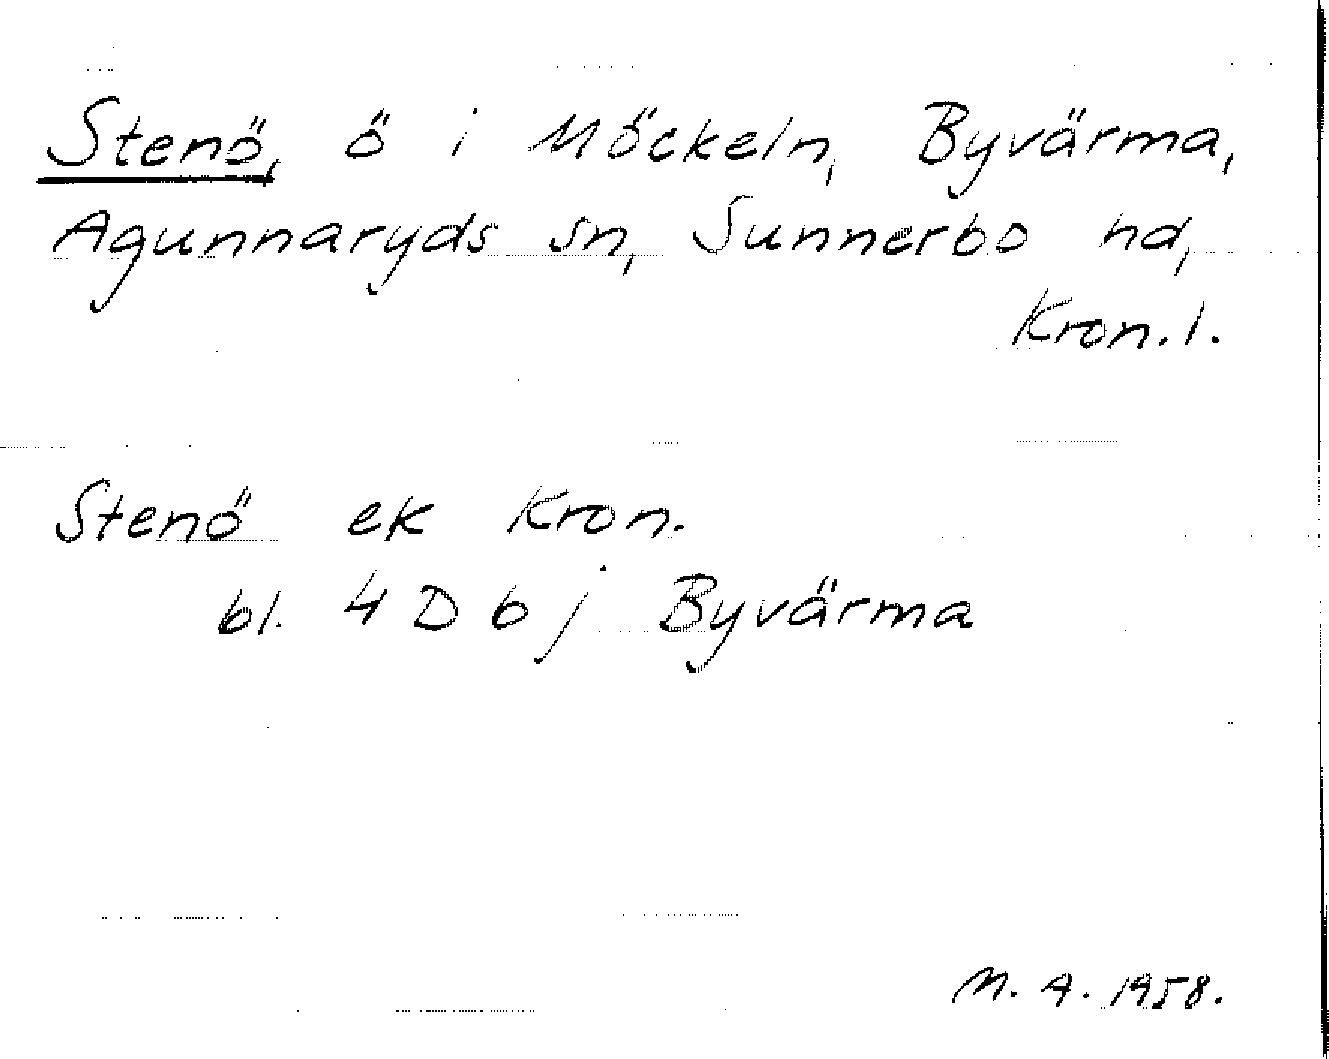 Stenö, ö i Möckeln, Byvärma,
Agunnaryds sn, Sunnerbo hd,
Kron. l.
Stenö ek Kron.
bl. 4 D b j Byvärma
M. A. 1958.